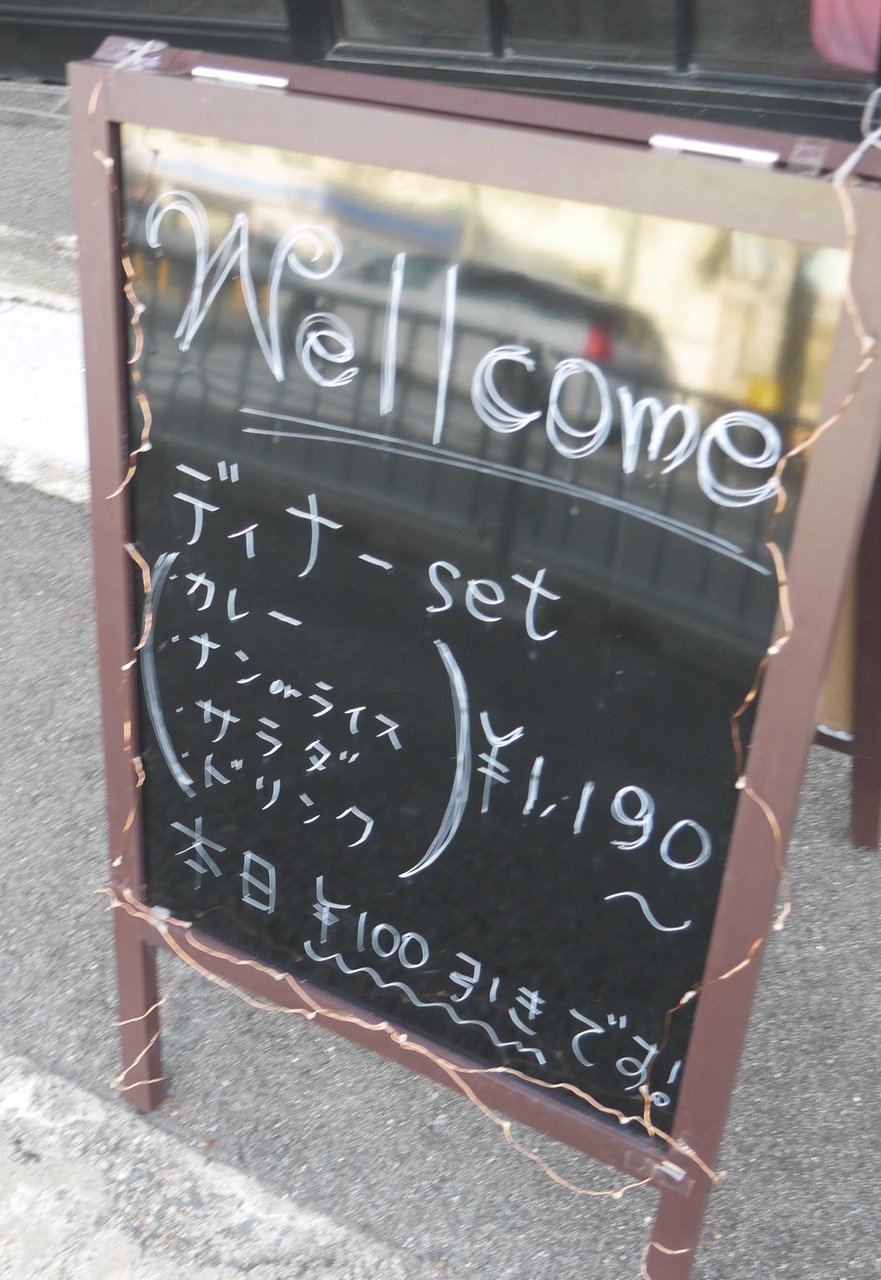 Wellcome
ディナー set
・カレー
・ナン or ライス
・サラダ
・ドリンク
¥1,190
～
本日 ¥100 引きです!